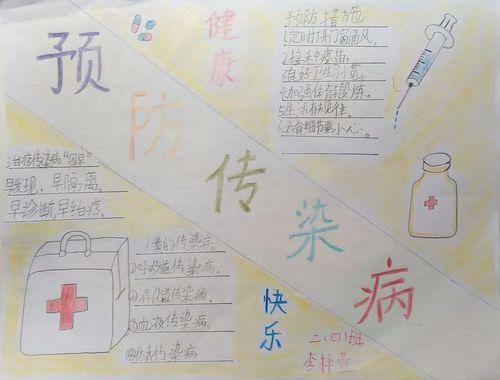 预防传染病
健康
预防措施方法
1.定时开门窗通风。
2.接种疫苗。
3.良好卫生习惯。
4.加强体育锻炼。
5.生活有规律。
6.衣食细节要小心。
治疗传染病“四早”
早发现,早隔离,
早诊断,早治疗。
人类的传染病
①呼吸道传染病。
②消化道传染病。
③血液传染病。
④体表传染病
快乐
二(四)班
李梓萱